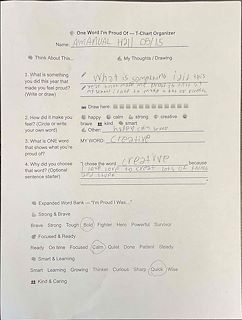 One Word I'm Proud Of — T-Chart Organizer
Name:
Think About This... My Thoughts / Drawing
1. What is something you did this year that made you feel proud? (Write or draw)
What is something
Draw here:
2. How did it make you feel? (Circle or write your own word)
happy calm strong creative
brave kind smart
Other:
3. What is ONE word that shows what you're proud of?
MY WORD: creative
4. Why did you choose that word? (Optional sentence starter)
"I chose the word creative because
Expanded Word Bank — "I'm Proud I Was..."
Strong & Brave
Brave Strong Tough Bold Fighter Hero Powerful Survivor
Focused & Ready
Ready On time Focused Calm Quiet Done Patient Steady
Smart & Learning
Smart Learning Growing Thinker Curious Sharp Quick Wise
Kind & Caring